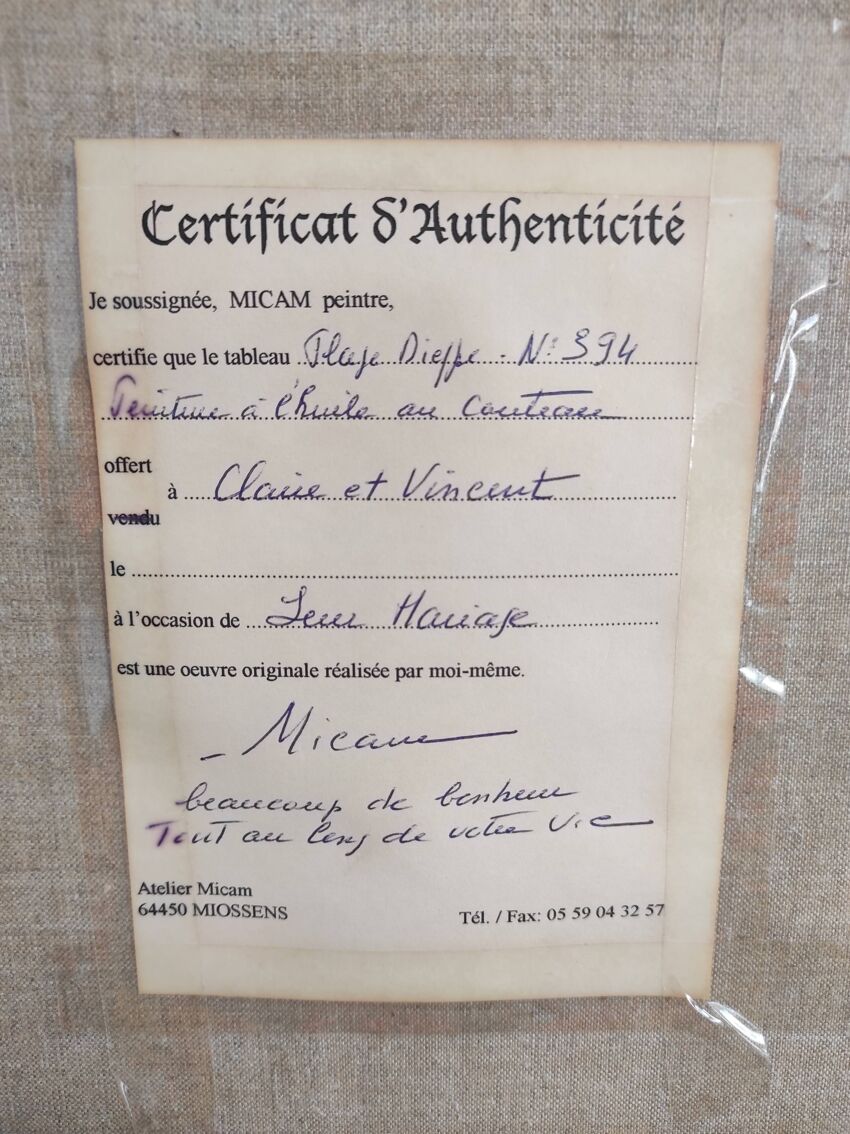 Certificat d'Authenticité
Je soussignée, MICAM peintre,
certifie que le tableau Plage Dieppe - N° 394
Peinture à l'huile au Couteau
offert
à Claire et Vincent
vendu
le
à l'occasion de Leur Mariage
est une oeuvre originale réalisée par moi-même.
Micam
beaucoup de bonheur
Tout au long de votre Vie
Atelier Micam
64450 MIOSSENS
Tél. / Fax: 05 59 04 32 57